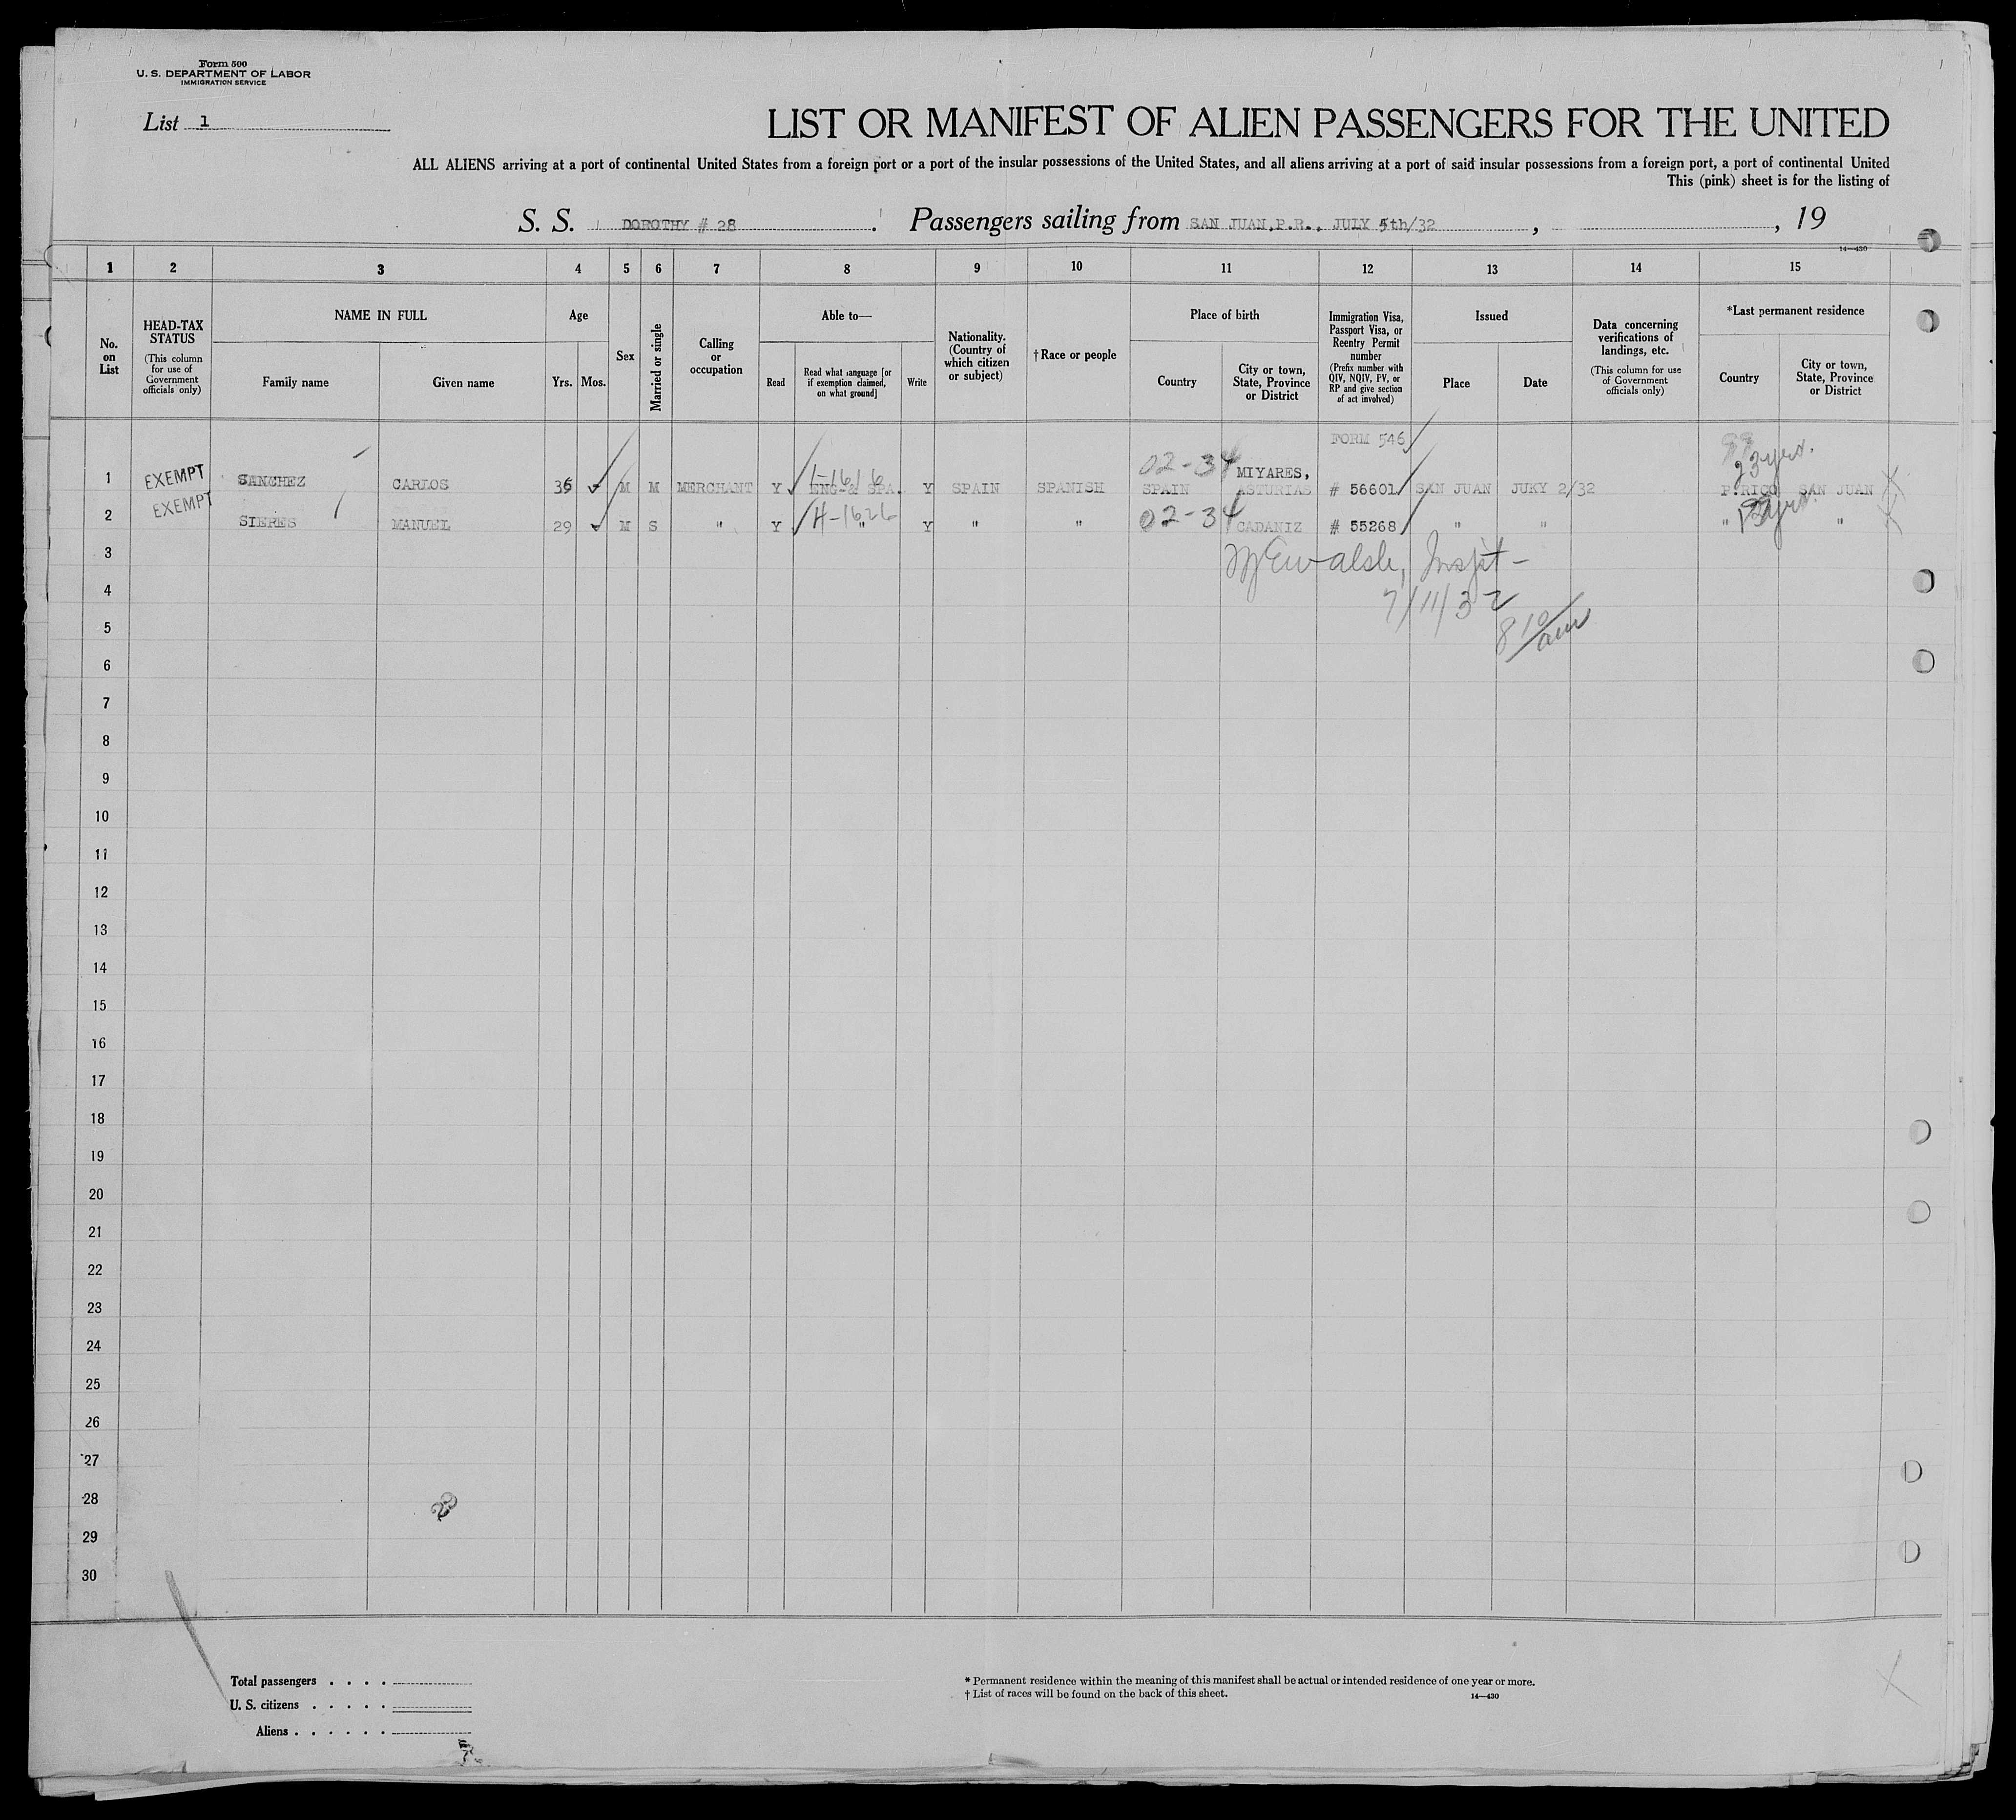 Form 500
U. S. DEPARTMENT OF LABOR
IMMIGRATION SERVICE
List 1
LIST OR MANIFEST OF ALIEN PASSENGERS FOR THE UNITED
ALL ALIENS arriving at a port of continental United States from a foreign port or a port of the insular possessions of the United States, and all aliens arriving at a port of said insular possessions from a foreign port, a port of continental United
This (pink) sheet is for the listing of
S. S. DOROTHY # 28 . Passengers sailing from SAN JUAN,P.R., JULY 5th/32 , , 19
14—430
1 2 3 4 5 6 7 8 9 10 11 12 13 14 15
No. on List
HEAD-TAX STATUS (This column for use of Government officials only)
NAME IN FULL
Family name Given name
Age
Yrs. Mos.
Sex
Married or single
Calling or occupation
Able to—
Read Read what language [or if exemption claimed, on what ground] Write
Nationality. (Country of which citizen or subject)
† Race or people
Place of birth
Country City or town, State, Province or District
Immigration Visa, Passport Visa, or Reentry Permit number (Prefix number with QIV, NQIV, PV, or RP and give section of act involved)
Issued
Place Date
Data concerning verifications of landings, etc. (This column for use of Government officials only)
*Last permanent residence
Country City or town, State, Province or District
FORM 546
02-34 MIYARES, 23 yrs.
1 EXEMPT SANCHEZ CARLOS 36 M M MERCHANT Y ENG-& SPA. Y SPAIN SPANISH SPAIN ASTURIAS # 56601 SAN JUAN JUKY 2/32 P.RICO SAN JUAN
1-1616
2 EXEMPT SIERES MANUEL 29 M S " Y " Y " " 02-34 CADANIZ # 55268 " " " "
4-1626
3
Insp't-
4 7/11/32
5 8 10/am
6
7
8
9
10
11
12
13
14
15
16
17
18
19
20
21
22
23
24
25
26
27
28
29
30
23
Total passengers . . . .
U. S. citizens . . . . .
Aliens . . . . . .
* Permanent residence within the meaning of this manifest shall be actual or intended residence of one year or more.
† List of races will be found on the back of this sheet.
14—430